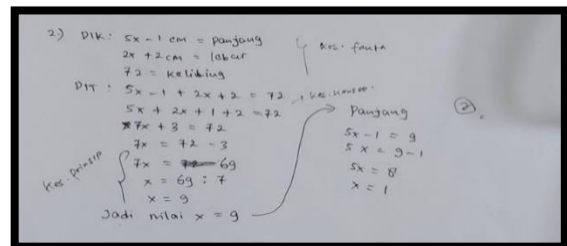 2.) DIK : 5x - 1 cm = panjang
2x + 2 cm = lebar
72 = keliling
kes. fakta
DIT : 5x - 1 + 2x + 2 = 72
kes. konsep
5x + 2x + 1 + 2 = 72
7x + 3 = 72
7x = 72 - 3
7x = 69
x = 69 : 7
x = 9
kes. prinsip
Jadi nilai x = 9
Panjang
5x - 1 = 9
5x = 9 - 1
5x = 8
x = 1
2.